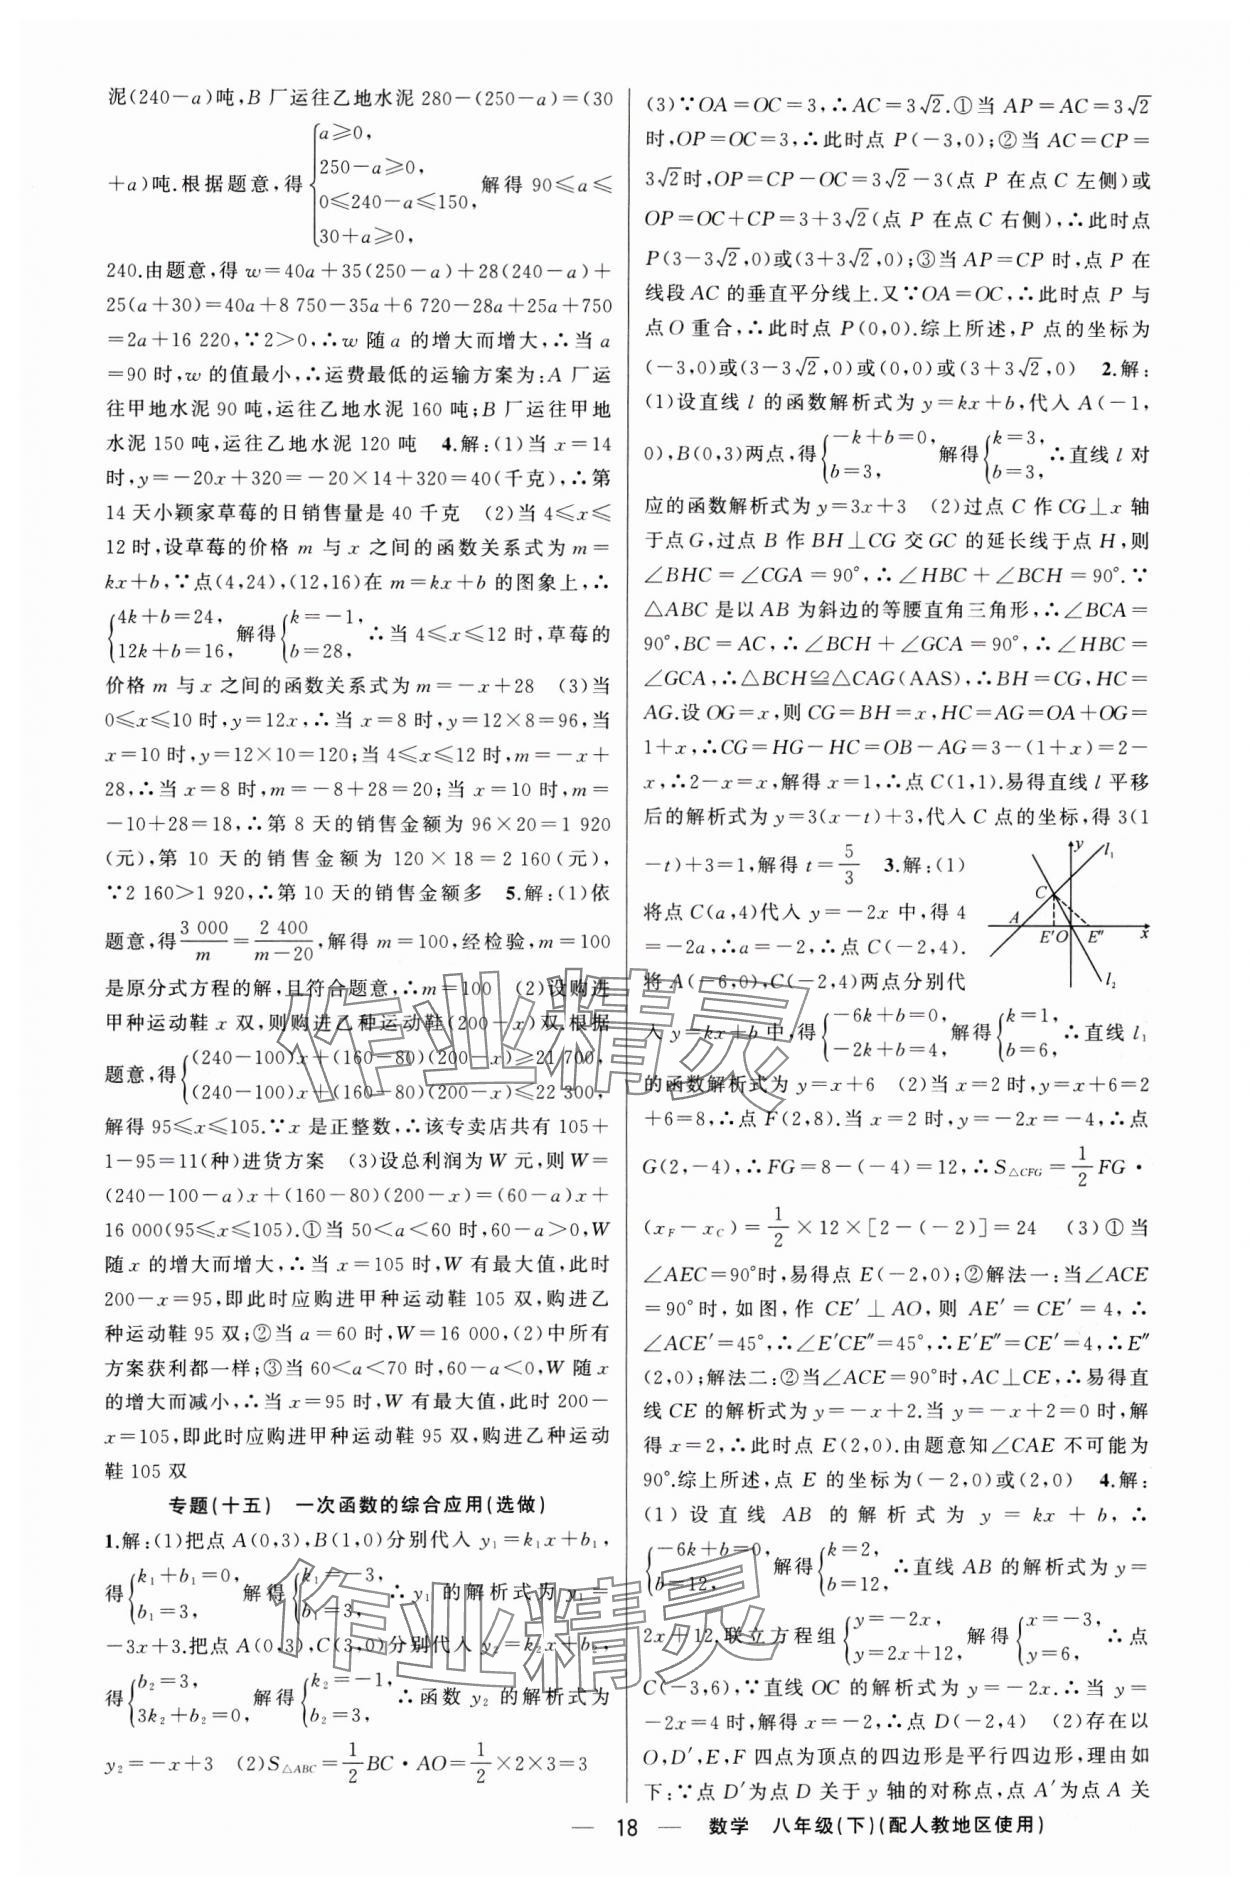 泥(240-a)吨,B厂运往乙地水泥280-(250-a)=(30
+a)吨.根据题意,得{a≥0, 250-a≥0, 0≤240-a≤150, 30+a≥0, 解得90≤a≤
240.由题意,得w=40a+35(250-a)+28(240-a)+
25(a+30)=40a+8 750-35a+6 720-28a+25a+750
=2a+16 220,∵2>0,∴w随a的增大而增大,∴当a
=90时,w的值最小,∴运费最低的运输方案为:A厂运
往甲地水泥90吨,运往乙地水泥160吨;B厂运往甲地
水泥150吨,运往乙地水泥120吨 4.解:(1)当x=14
时,y=-20x+320=-20×14+320=40(千克),∴第
14天小颖家草莓的日销售量是40千克 (2)当4≤x≤
12时,设草莓的价格m与x之间的函数关系式为m=
kx+b,∵点(4,24),(12,16)在m=kx+b的图象上,∴
{4k+b=24, 12k+b=16, 解得{k=-1, b=28, ∴当4≤x≤12时,草莓的
价格m与x之间的函数关系式为m=-x+28 (3)当
0≤x≤10时,y=12x,∴当x=8时,y=12×8=96,当
x=10时,y=12×10=120;当4≤x≤12时,m=-x+
28,∴当x=8时,m=-8+28=20;当x=10时,m=
-10+28=18,∴第8天的销售金额为96×20=1 920
(元),第10天的销售金额为120×18=2 160(元),
∵2 160>1 920,∴第10天的销售金额多 5.解:(1)依
题意,得3 000/m=2 400/(m-20),解得m=100,经检验,m=100
是原分式方程的解,且符合题意,∴m=100 (2)设购进
甲种运动鞋x双,则购进乙种运动鞋(200-x)双,根据
题意,得{(240-100)x+(160-80)(200-x)≥21 700, (240-100)x+(160-80)(200-x)≤22 300,
解得95≤x≤105.∵x是正整数,∴该专卖店共有105+
1-95=11(种)进货方案 (3)设总利润为W元,则W=
(240-100-a)x+(160-80)(200-x)=(60-a)x+
16 000(95≤x≤105).①当50<a<60时,60-a>0,W
随x的增大而增大,∴当x=105时,W有最大值,此时
200-x=95,即此时应购进甲种运动鞋105双,购进乙
种运动鞋95双;②当a=60时,W=16 000,(2)中所有
方案获利都一样;③当60<a<70时,60-a<0,W随x
的增大而减小,∴当x=95时,W有最大值,此时200-
x=105,即此时应购进甲种运动鞋95双,购进乙种运动
鞋105双
专题(十五) 一次函数的综合应用(选做)
1.解:(1)把点A(0,3),B(1,0)分别代入y₁=k₁x+b₁,
得{k₁+b₁=0, b₁=3, 解得{k₁=-3, b₁=3, ∴y₁的解析式为y₁=
-3x+3.把点A(0,3),C(3,0)分别代入y₂=k₂x+b₂,
得{b₂=3, 3k₂+b₂=0, 解得{k₂=-1, b₂=3, ∴函数y₂的解析式为
y₂=-x+3 (2)S△ABC=1/2BC·AO=1/2×2×3=3
(3)∵OA=OC=3,∴AC=3√2.①当AP=AC=3√2
时,OP=OC=3,∴此时点P(-3,0);②当AC=CP=
3√2时,OP=CP-OC=3√2-3(点P在点C左侧)或
OP=OC+CP=3+3√2(点P在点C右侧),∴此时点
P(3-3√2,0)或(3+3√2,0);③当AP=CP时,点P在
线段AC的垂直平分线上.又∵OA=OC,∴此时点P与
点O重合,∴此时点P(0,0).综上所述,P点的坐标为
(-3,0)或(3-3√2,0)或(0,0)或(3+3√2,0) 2.解:
(1)设直线l的函数解析式为y=kx+b,代入A(-1,
0),B(0,3)两点,得{-k+b=0, b=3, 解得{k=3, b=3, ∴直线l对
应的函数解析式为y=3x+3 (2)过点C作CG⊥x轴
于点G,过点B作BH⊥CG交GC的延长线于点H,则
∠BHC=∠CGA=90°,∴∠HBC+∠BCH=90°.∵
△ABC是以AB为斜边的等腰直角三角形,∴∠BCA=
90°,BC=AC,∴∠BCH+∠GCA=90°,∴∠HBC=
∠GCA,∴△BCH≌△CAG(AAS),∴BH=CG,HC=
AG.设OG=x,则CG=BH=x,HC=AG=OA+OG=
1+x,∴CG=HG-HC=OB-AG=3-(1+x)=2-
x,∴2-x=x,解得x=1,∴点C(1,1).易得直线l平移
后的解析式为y=3(x-t)+3,代入C点的坐标,得3(1
-t)+3=1,解得t=5/3 3.解:(1)
将点C(a,4)代入y=-2x中,得4
=-2a,∴a=-2,∴点C(-2,4).
将A(-6,0),C(-2,4)两点分别代
y l₁ C A E′ O E″ x l₂
入y=kx+b中,得{-6k+b=0, -2k+b=4, 解得{k=1, b=6, ∴直线l₁
的函数解析式为y=x+6 (2)当x=2时,y=x+6=2
+6=8,∴点F(2,8).当x=2时,y=-2x=-4,∴点
G(2,-4),∴FG=8-(-4)=12,∴S△CFG=1/2FG·
(xF-xC)=1/2×12×[2-(-2)]=24 (3)①当
∠AEC=90°时,易得点E(-2,0);②解法一:当∠ACE
=90°时,如图,作CE′⊥AO,则AE′=CE′=4,∴
∠ACE′=45°,∴∠E′CE″=45°,∴E′E″=CE′=4,∴E″
(2,0);解法二:②当∠ACE=90°时,AC⊥CE,∴易得直
线CE的解析式为y=-x+2.当y=-x+2=0时,解
得x=2,∴此时点E(2,0).由题意知∠CAE不可能为
90°.综上所述,点E的坐标为(-2,0)或(2,0) 4.解:
(1)设直线AB的解析式为y=kx+b,∴
{-6k+b=0, b=12, 解得{k=2, b=12, ∴直线AB的解析式为y=
2x+12,联立方程组{y=-2x, y=2x+12, 解得{x=-3, y=6, ∴点
C(-3,6),∵直线OC的解析式为y=-2x.∴当
-2x=4时,解得x=-2,∴点D(-2,4) (2)存在以
O,D′,E,F四点为顶点的四边形是平行四边形,理由如
下:∵点D′为点D关于y轴的对称点,点A′为点A关
— 18 — 数学 八年级(下)(配人教地区使用)
作业精灵
作业精灵